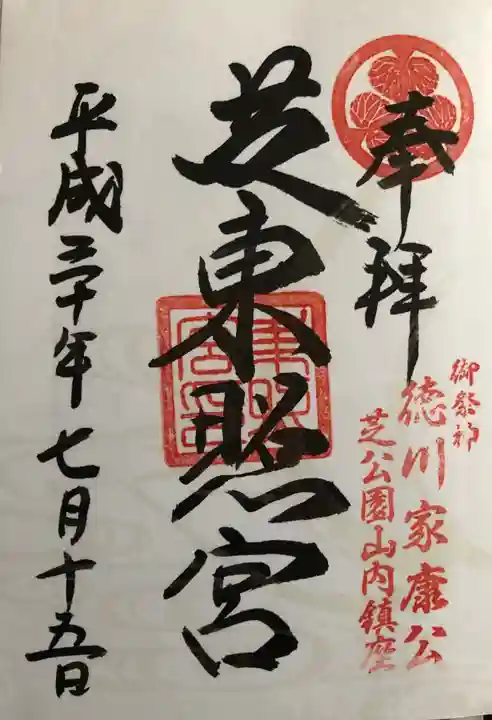 奉拝
御祭神
徳川家康公
芝公園山内鎮座
芝東照宮
平成三十年七月十五日